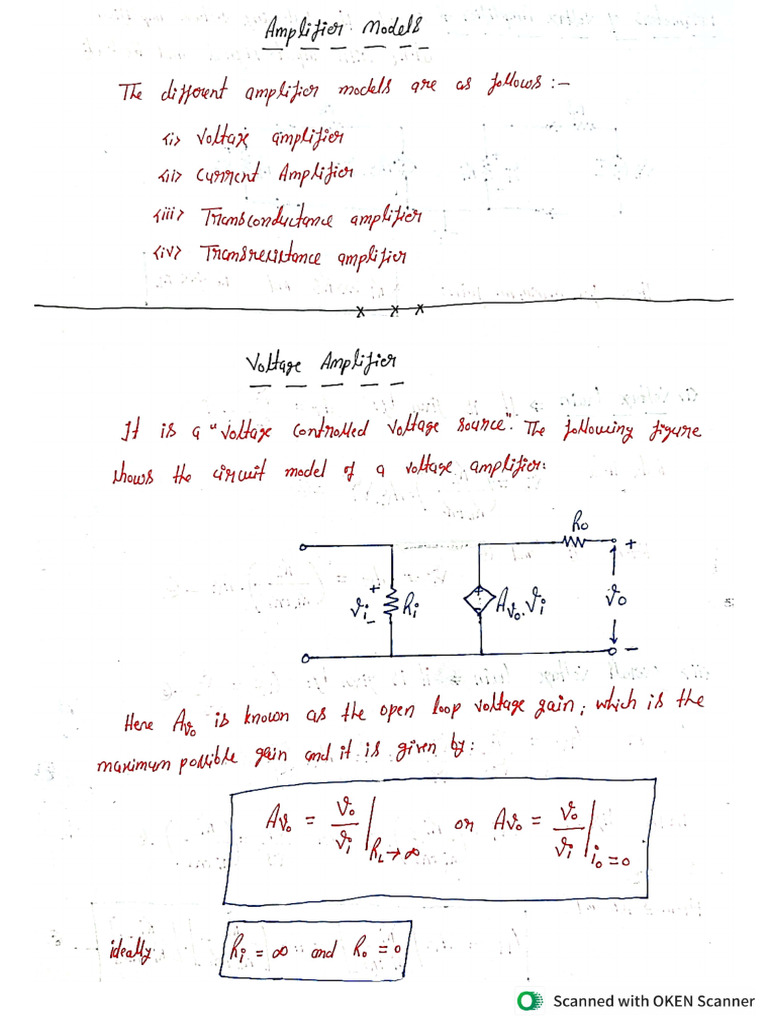 Amplifier Models
The different amplifier models are as follows :-
<i> Voltage amplifier
<ii> Current Amplifier
<iii> Transconductance amplifier
<iv> Transresistance amplifier
x x x
Voltage Amplifier
It is a "voltage controlled voltage source". The following figure
shows the circuit model of a voltage amplifier:
Ro
+ vi - Ri + - Av₀.vi + vo -
Here Av₀ is known as the open loop voltage gain, which is the
maximum possible gain and it is given by:
Av₀ = vo/vi | RL→∞ or Av₀ = vo/vi | io=0
ideally Ri = ∞ and Ro = 0
Scanned with OKEN Scanner